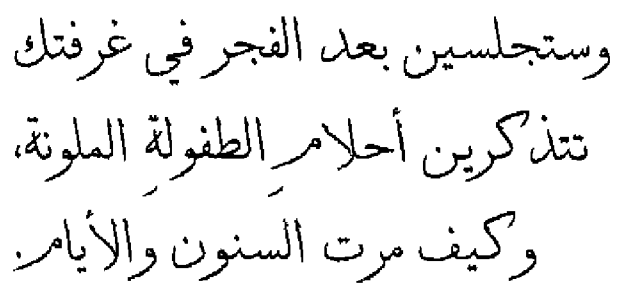 وستجلسين بعد الفجر في غرفتك
تتذكرين أحلامِ الطفولةِ الملونة،
وكيف مرت السنون والأيام.